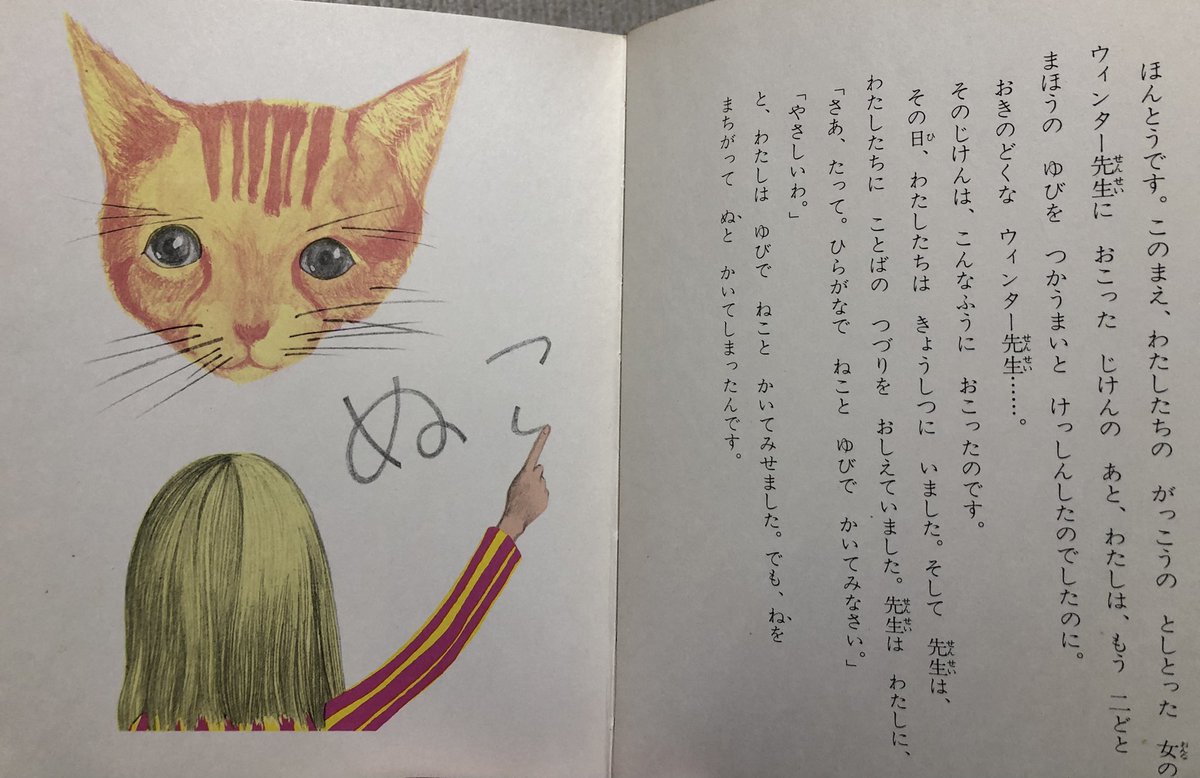 ほんとうです。このまえ、わたしたちの がっこうの としとった 女の
ウィンター先生に おこった じけんの あと、わたしは、もう 二どと
まほうの ゆびを つかうまいと けっしんしたのでしたのに。
おきのどくな ウィンター先生……。
そのじけんは、こんなふうに おこったのです。
その日、わたしたちは きょうしつに いました。そして 先生は、
わたしたちに ことばの つづりを おしえていました。先生は わたしに、
「さあ、たって。ひらがなで ねこと ゆびで かいてみなさい。」
「やさしいわ。」
と、わたしは ゆびで ねこと かいてみせました。でも、ねを
まちがって ぬと かいてしまったんです。
ぬこ